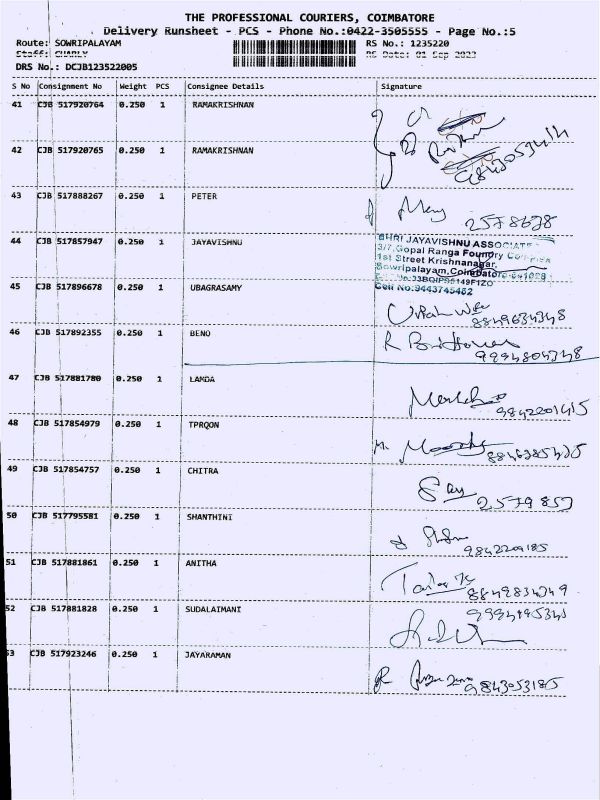 THE PROFESSIONAL COURIERS, COIMBATORE
Delivery Runsheet - PCS - Phone No.:0422-3505555 - Page No.:5
Route: SOWRIPALAYAM RS No.: 1235220
Staff: CHARLY RS Date: 01 Sep 2023
DRS No.: DCJB123522005
S No Consignment No Weight PCS Consignee Details Signature
41 CJB 517920764 0.250 1 RAMAKRISHNAN
42 CJB 517920765 0.250 1 RAMAKRISHNAN
43 CJB 517888267 0.250 1 PETER
2578628
44 CJB 517857947 0.250 1 JAYAVISHNU
SHRI JAYAVISHNU ASSOCIATE
3/7, Gopal Ranga Foundry Complex
1st Street Krishnanagar,
Sowripalayam, Coimbatore-641028
Cell No:9443745462
45 CJB 517896678 0.250 1 UBAGRASAMY
8849634348
46 CJB 517892355 0.250 1 BENO
9994804348
47 CJB 517881780 0.250 1 LAMDA
9842201415
48 CJB 517854979 0.250 1 TPRQON
49 CJB 517854757 0.250 1 CHITRA
2579857
50 CJB 517795581 0.250 1 SHANTHINI
9842209185
51 CJB 517881861 0.250 1 ANITHA
52 CJB 517881828 0.250 1 SUDALAIMANI
53 CJB 517923246 0.250 1 JAYARAMAN
9843053185